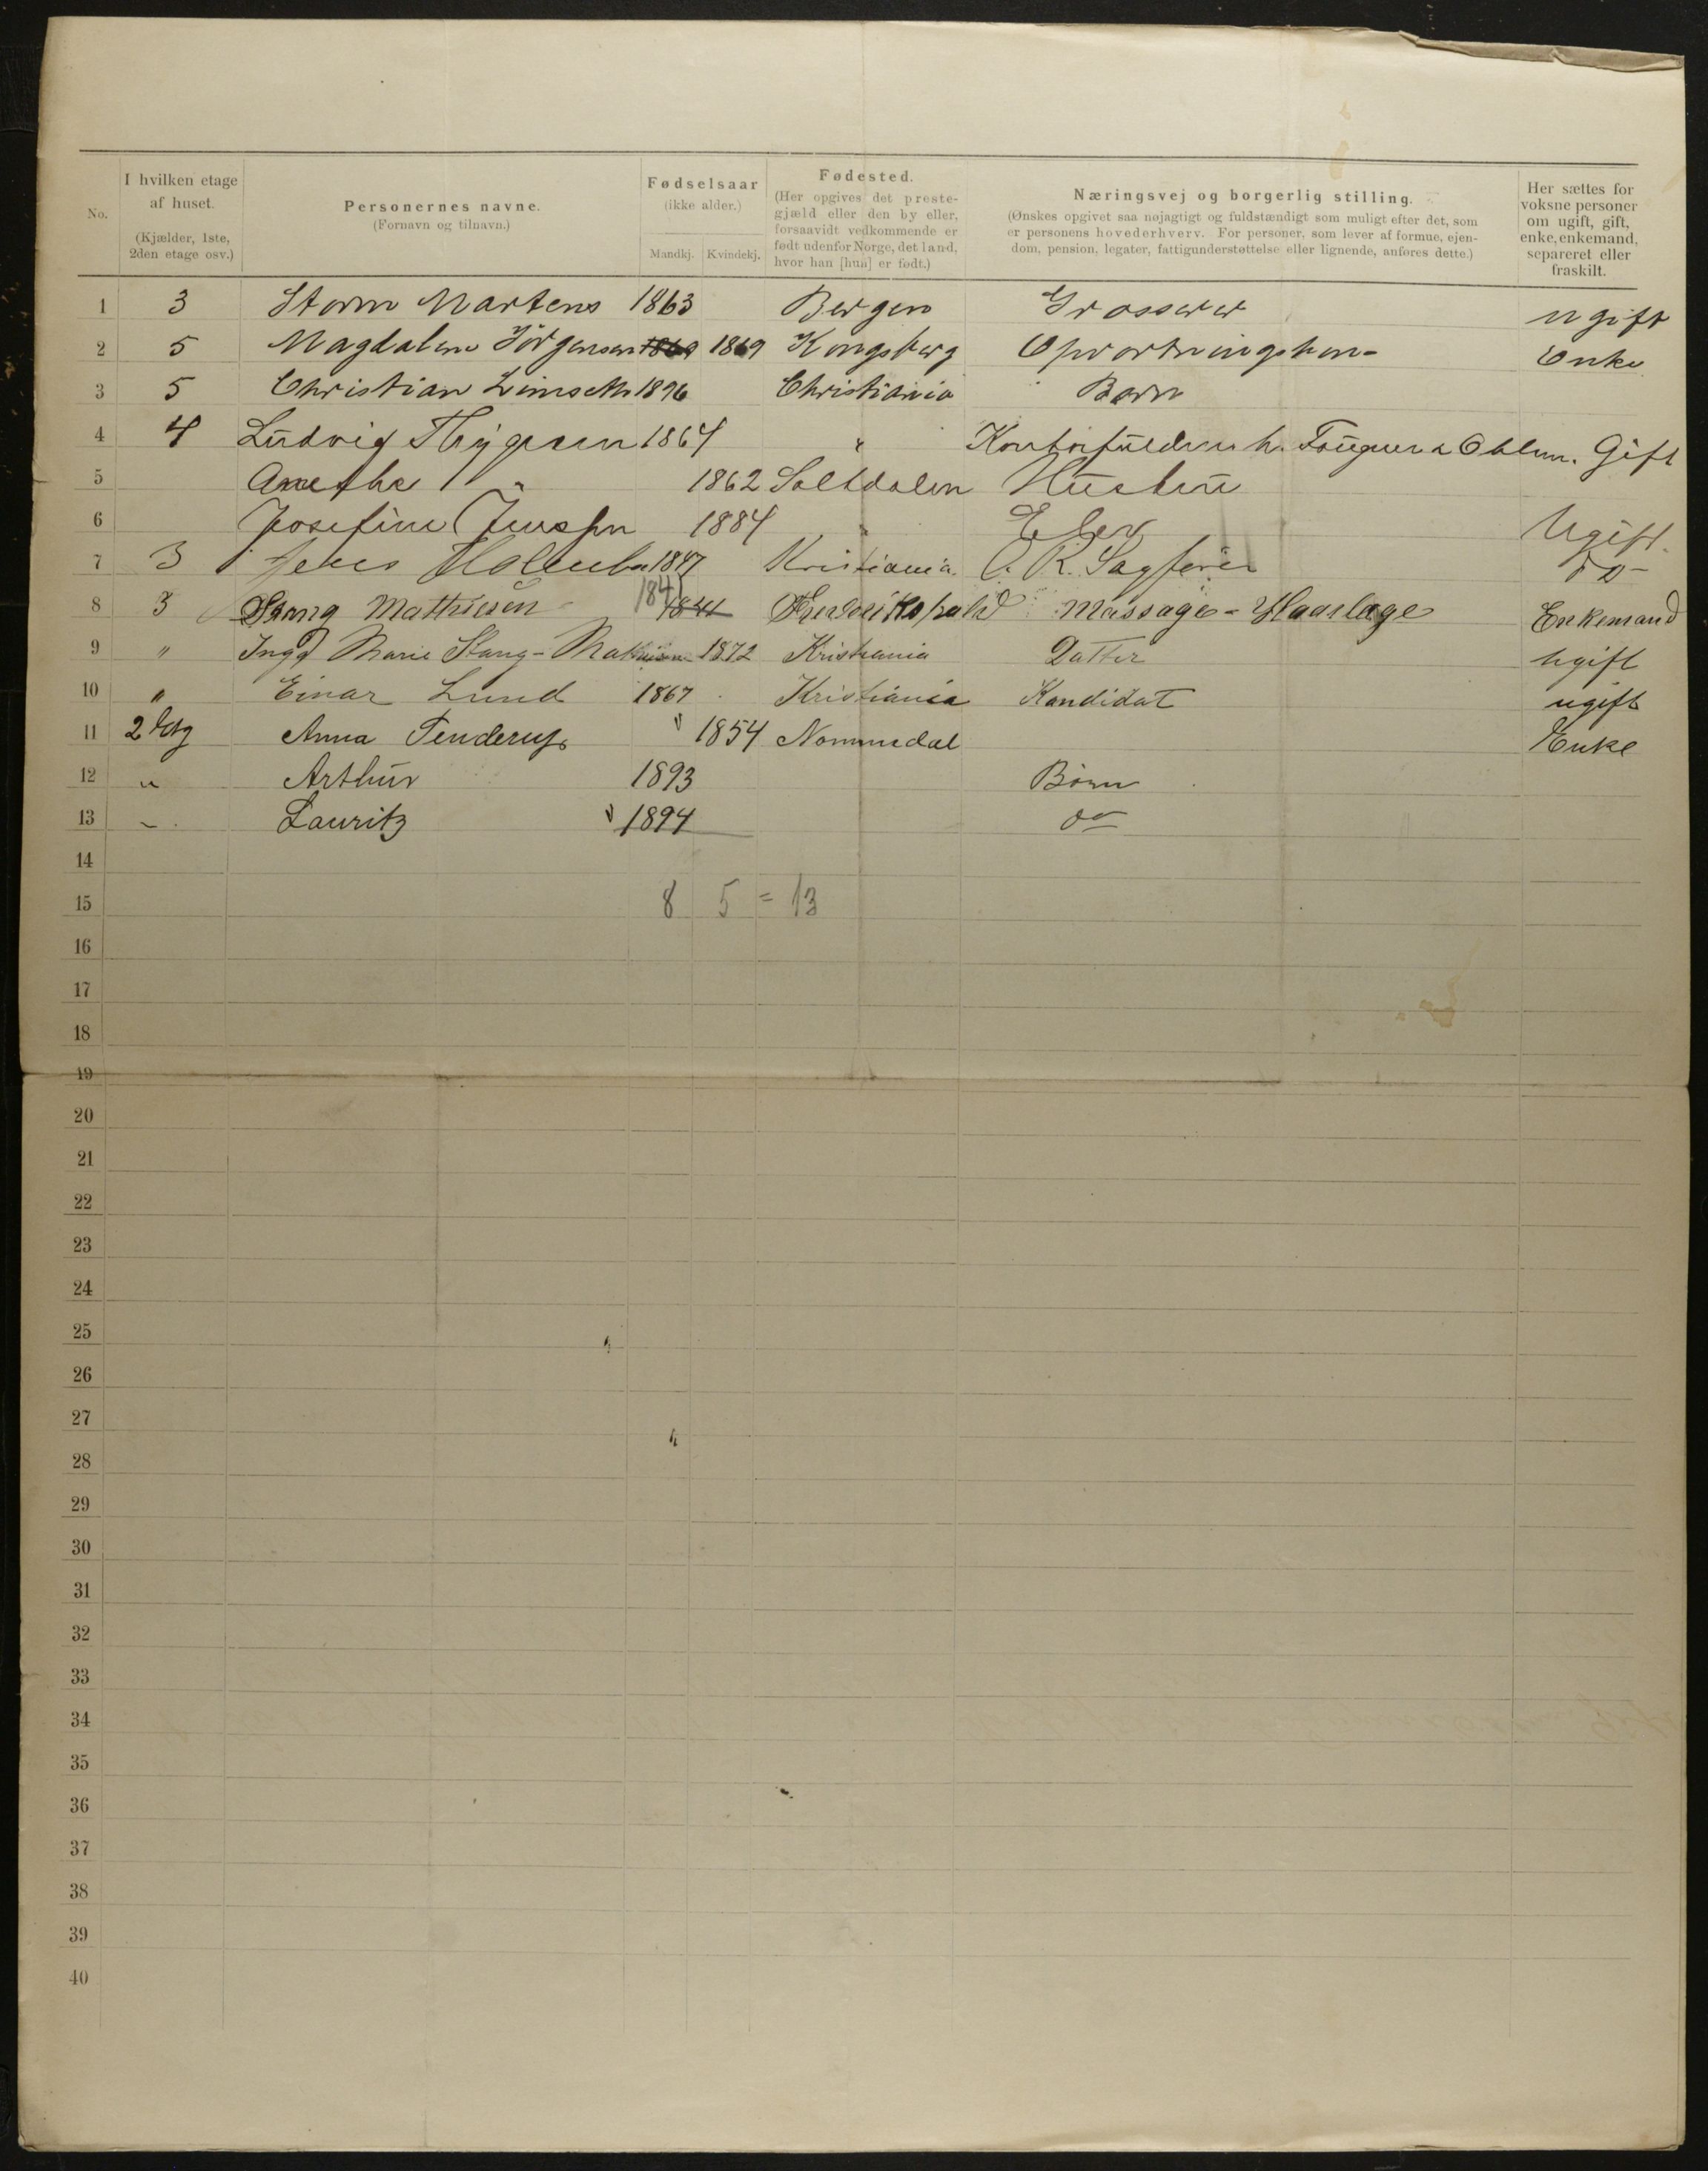 No. I hvilken etage af huset. (Kjælder, 1ste, 2den etage osv.) Personernes navne. (Fornavn og tilnavn.) Fødselsaar (ikke alder.) Mandkj. Kvindekj. Fødested. (Her opgives det preste-gjæld eller den by eller, forsaavidt vedkommende er født udenfor Norge, det land, hvor han [hun] er født.) Næringsvej og borgerlig stilling. (Ønskes opgivet saa nøjagtigt og fuldstændigt som muligt efter det, som er personens hovederhverv. For personer, som lever af formue, ejen-dom, pension, legater, fattigunderstøttelse eller lignende, anføres dette.) Her sættes for voksne personer om ugift, gift, enke, enkemand, separeret eller fraskilt.
1 3 Storm Martens 1863 Bergen Grosserer ugift
2 5 Magdalene Jörgensen 1869 1869 Kongsberg Enke
3 5 Christian 1896 Christiania Barn
4 4 Ludvig Thygesen 1864 " Gift
5 " 1862 Saltdalen Hustru
6 Josefine Jensen 1884 " Elev Ugift
7 3 Jens 1847 Kristiania. O. R. Sagfører do
8 3 Stang Mathiesen 1841 1841 Fredrikshald Massage - Enkemand
9 " Inga Marie Stang-Mathiesen 1872 Kristiania Datter ugift
10 " Einar Lund 1867 Kristiania Kandidat ugift
11 2 Etg Anna Tenderup 1854 Nommedal Enke
12 " Arthur 1893 Børn
13 " Lauritz 1894 do
14
15 8 5 = 13
16
17
18
19
20
21
22
23
24
25
26
27
28
29
30
31
32
33
34
35
36
37
38
39
40